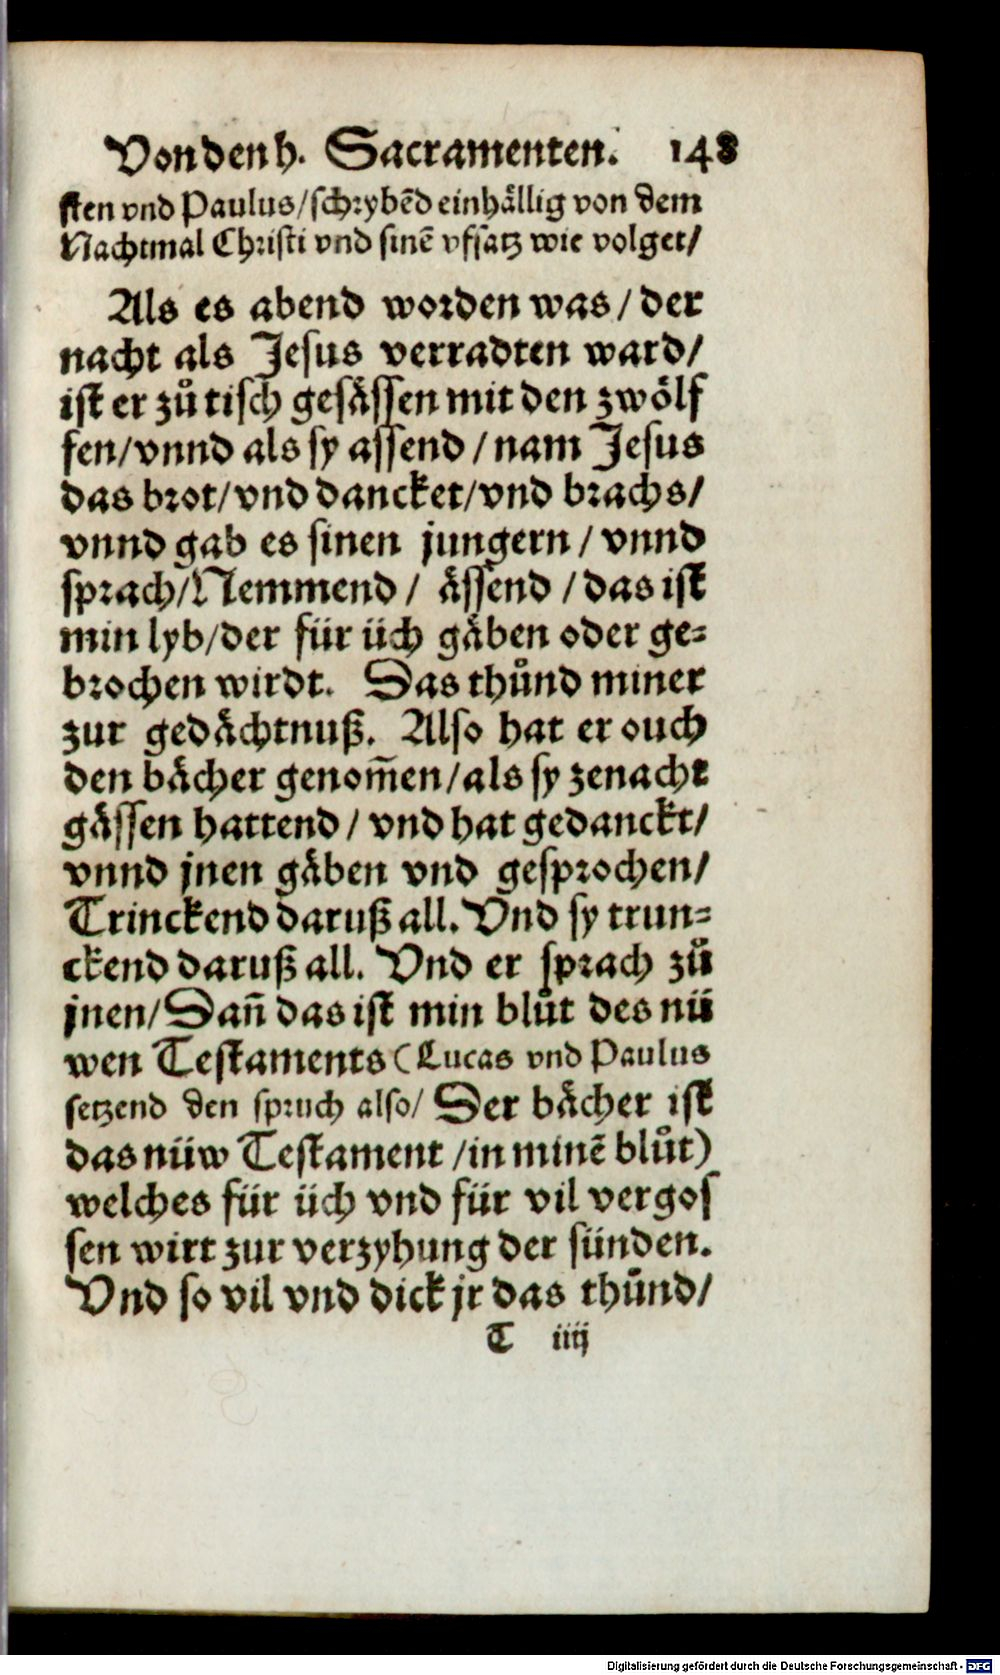 Von den h. Sacramenten. 148
sten vnd Paulus/schrybẽd einhällig von dem
Nachtmal Christi vnd sinẽ vfsatz wie volget/
Als es abend worden was/ der
nacht als Jesus verradten ward/
ist er zů tisch gesässen mit den zwölf
fen/vnnd als sy assend/nam Jesus
das brot/vnd dancket/vnd brachs/
vnnd gab es sinen jungern/ vnnd
sprach/Nemmend/ ässend/das ist
min lyb/der für üch gäben oder ge-
brochen wirdt. Das thůnd miner
zur gedächtnuß. Also hat er ouch
den bächer genom̃en/als sy zenacht
gässen hattend/ vnd hat gedanckt/
vnnd jnen gäben vnd gesprochen/
Trinckend daruß all. Vnd sy trun-
ckend daruß all. Vnd er sprach zů
jnen/Dañ das ist min blůt des nü
wen Testaments (Lucas vnd Paulus
setzend den spruch also/ Der bächer ist
das nüw Testament/in minẽ blůt)
welches für üch vnd für vil vergos
sen wirt zur verzyhung der sünden.
Vnd so vil vnd dick jr das thůnd/
T iiij
Digitalisierung gefördert durch die Deutsche Forschungsgemeinschaft - DFG